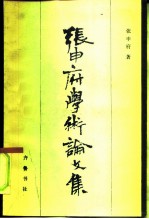 張申府學術論文集
張申府 著
齐鲁书社